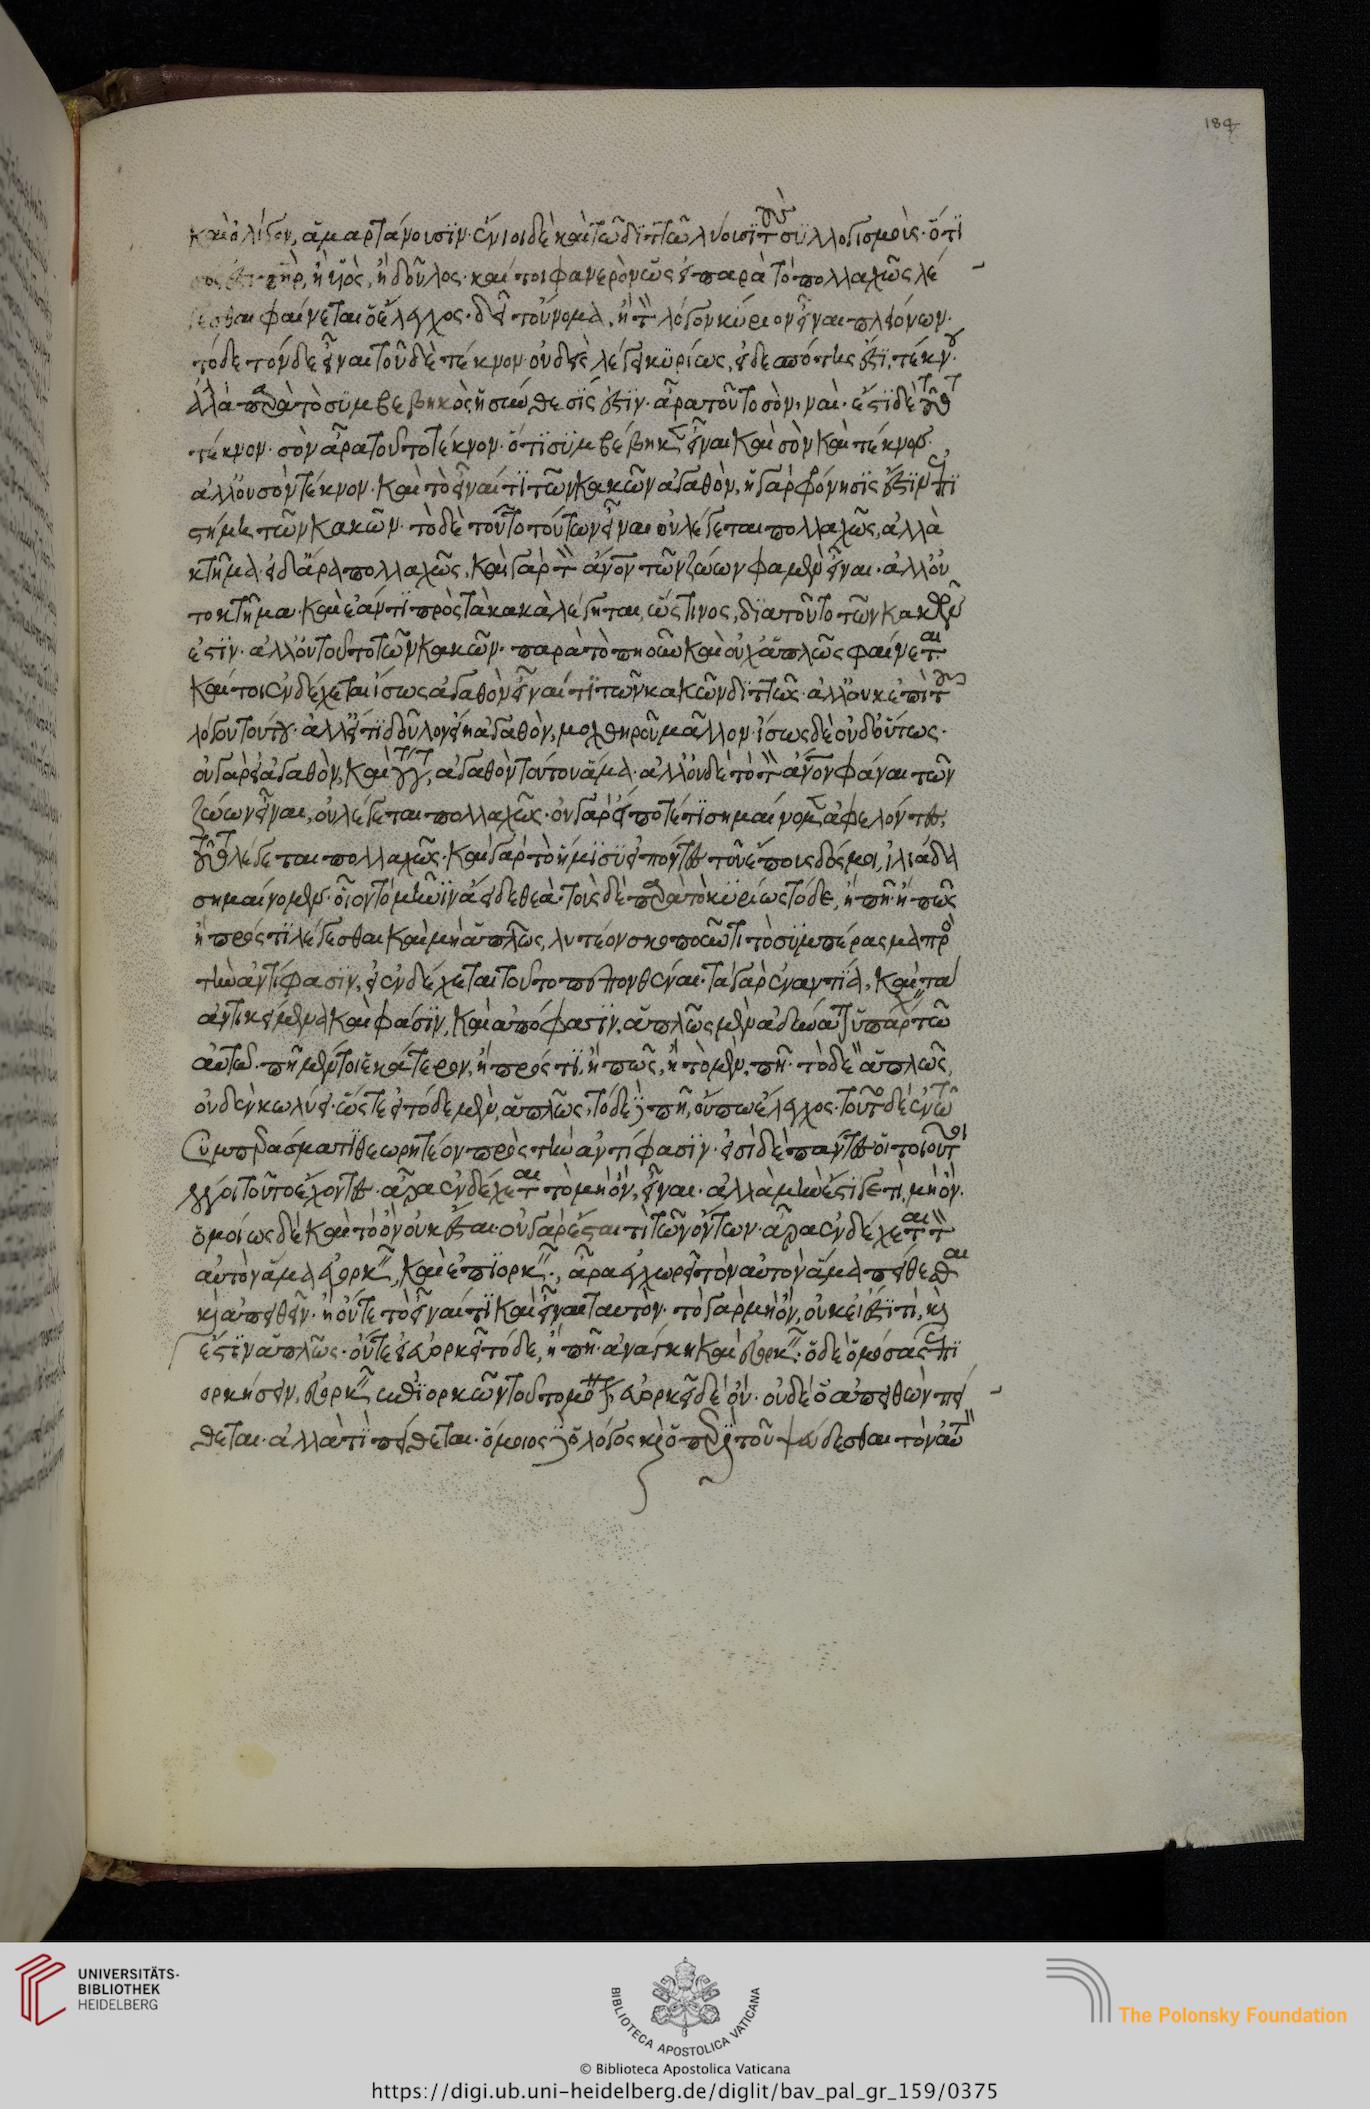 καὶ ὀλίγον, ἁμαρτάνουσϊν· ἔνιοι δὲ καὶ τῶ διττῶ λύουσϊ τοὺς συλλογισμοὺς· ὅτι
σος ἐστι πηρ, ἢ ϋἱὸς, ἢ δοῦλος· καί τοι φανερὸν ὡς εἰ παρὰ τὸ πολλαχῶς λέ
γεσθαι φαίνεται ὁ ἔλεγχος· δεῖ τοὔνομα, ἢ τὸν λόγον κύριον εἶναι πλειόνων·
τὸ δε τόνδε εἶναι τοῦδε τέκνον οὐδεὶς λέγει κυρίως, εἰ δεσπότης ἐστὶ τέκνου·
ἀλλὰ παρὰ τὸ συμβεβηκὸς ἡ σύνθεσίς ἐστϊν· ἆρα τοῦτο σὸν, ναί· ἔστϊ δὲ τοῦτο
τέκνον· σὸν ἄρα τοῦτο τέκνον· ὅτι συμβέβηκεν εἶναι καὶ σὸν καὶ τέκνον·
ἀλλ' οὐ σὸν τέκνον· καὶ τὸ εἶναί τϊ τῶν κακῶν ἀγαθὸν, ἡ γὰρ φρόνησϊς ἐστϊν ἐπι
στήμη τῶν κακῶν· τὸ δὲ τοῦτο τούτων εἶναι οὐ λέγεται πολλαχῶς, ἀλλὰ
κτῆμα· εἰ δ' ἄρα πολλαχῶς, καὶ γὰρ τὸν ἄνον τῶν ζώων φαμὲν εἶναι· ἀλλ' οὔ
το κτῆμα· καὶ ἐάν τϊ πρὸς τὰ κακὰ λέγηται, ὥς τινος, διὰ τοῦτο τῶν κακῶν
ἐστϊν· ἀλλ' οὐ τοῦτο τῶν κακῶν· παρὰ τὸ πη οὖν καὶ οὐχ ἁπλῶς φαίνεται
καί τοι ἐνδέχεται ἴσως ἀγαθὸν εἶναί τϊ τῶν κακῶν διττῶς· ἀλλ' οὐκ ἐπὶ τοῦ
λόγου τούτου· ἀλλ' εἴ τι δοῦλον εἴη ἀγαθὸν, μοχθηροῦ μᾶλλον· ἴσως δὲ οὐδ' οὕτως·
οὐ γὰρ εἰ ἀγαθὸν, καὶ τούτου, ἀγαθὸν τούτου ἅμα· ἀλλ' οὐδὲ τὸ τὸν ἄνον φάναι τῶν
ζώων εἶναι, οὐ λέγεται πολλαχῶς· οὐ γὰρ εἴ ποτέ τι σημαίνομεν ἀφελόντες,
τοῦτο λέγεται πολλαχῶς· καὶ γὰρ τὸ ἥμϊσϋ εἰπόντες τοῦ ἔπους δός μοι, ἰλιάδα
σημαίνομεν· οἷον τὸ μῆνϊν ἄειδε θεὰ· τοὺς δὲ παρὰ τὸ κυρίως τόδε, ἢ πῆ· ἢ πῶς
ἢ πρός τϊ λέγεσθαι καὶ μὴ ἁπλῶς, λυτέον σκοποῦντι τὸ συμπέρασμα πρὸς
τὴν ἀντίφασϊν, εἰ ἐνδέχεται τούτο πεπονθέναι· τὰ γὰρ ἐναντϊα, καὶ τα
ἀντικείμενα καὶ φάσϊν, καὶ ἀπόφασϊν, ἁπλῶς μὲν ἀδύνατον ὑπάρχειν τῶ
αὐτῶ· πῆ μέντοι ἑκάτερον, ἢ πρός τϊ, ἢ πῶς, ἢ τὸ μὲν, πῆ· τὸ δε ἁπλῶς,
οὐδὲν κωλύει· ὥστε εἰ τόδε μὲν, ἁπλῶς, τόδε δὲ πῆ, οὔπω ἔλεγχος· τοῦτο δὲ ἐν τῶ
συμπεράσματϊ θεωρητέον πρὸς τὴν ἀντίφασϊν· εἰσὶ δὲ πάντες οἱ τοιοῦτοι
λόγοι τοῦτο ἔχοντες· ἆρα ἐνδέχεται τὸ μὴ ὄν, εἶναι· ἀλλὰ μὴν ἔστι δέ τι, μὴ ὄν·
ὁμοίως δὲ καὶ τὸ ὂν οὐκ ἔσται· οὐ γὰρ ἔσται τὶ τῶν ὄντων· ἆρα ἐνδέχεται τὸν
αὐτὸν ἅμα εὐορκεῖν, καὶ ἐπϊορκεῖν·, ἆρα ἐγχωρεῖ τὸν αὐτὸν ἅμα πείθεσθαι
κὶ ἀπειθεῖν· ἢ οὔτε τὸ εἶναί τϊ καὶ εἶναι ταυτὸν· τὸ γὰρ μὴ ὄν, οὐκ εἰ ἔστϊ τὶ, κὶ
ἔστϊν ἁπλῶς· οὔτε εἰ εὐορκεῖ τόδε, ἢ πῆ· ἀνάγκη καὶ εὐορκεῖν· ὁ δὲ ὀμόσας ἐπϊ
ορκήσειν, εὐορκεῖ ἐπϊορκῶν τοῦτο μόνον, εὐορκεῖ δὲ οὔ· οὐδ' ὁ ἀπειθῶν πεί
θεται· ἀλλὰ τὶ πείθεται· ὅμοιος δὲ ὁ λόγος κὶ ὁ περὶ τοῦ ψεύδεσθαι τὸν αὐτὸν
184
UNIVERSITÄTS-
BIBLIOTHEK
HEIDELBERG
BIBLIOTECA APOSTOLICA VATICANA
© Biblioteca Apostolica Vaticana
The Polonsky Foundation
https://digi.ub.uni-heidelberg.de/diglit/bav_pal_gr_159/0375